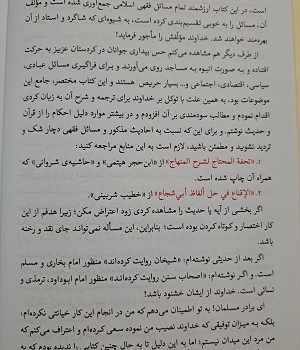 است، در این کتاب ارزشمند تمام مسائل فقهی اسلامی جمع‌آوری شده است و مؤلف
آن، مسائل را به خوبی تقسیم‌بندی کرده است، به شیوه‌ای که شاگرد و استاد از آن
بهره‌مند خواهند شد. خداوند مؤلفش را مأجور فرماید!
از طرف دیگر هم مشاهده می‌کنم حس بیداری جوانان در کردستان عزیز به حرکت
افتاده و به صورت انبوه به مساجد روی می‌آورند و برای فراگیری مسائل عبادی،
سیاسی، اقتصادی، اجتماعی و... بسیار حریص هستند و این کتاب مختصر، جامع این
موضوعات بود، به همین علت با توکل بر خداوند برای ترجمه و شرح آن به زبان کردی
اقدام نمودم و مطالب سودمندی بر آن افزودم و در موارد دلیل احکام را از قرآن
و حدیث نوشتم. و برای این که نسبت به احادیث مذکور و مسائل فقهی دچار شک و
تردید نشوید و مطمئن باشید، لازم است به این منابع مراجعه کنید:
۱. «تحفة المحتاج لشرح المنهاج» از «ابن حجر هیتمی» و «حاشیه‌ی شروانی» که
همراه آن چاپ شده است.
۲. «الإقناع في حل ألفاظ أبي‌شجاع» از «خطیب شربینی».
اگر بخشی از آیه یا حدیث را مشاهده کردی زود اعتراض مکن؛ زیرا هدفم از این
کار اختصار و کوتاه کردن بوده است؛ بنابراین، این مسأله نمی‌تواند جای نقد و رخنه
باشد.
اگر بعد از حدیثی نوشته‌ام: «شیخان روایت کرده‌اند» منظور امام بخاری و مسلم
است. و اگر نوشته‌ام: «اصحاب سنن روایت کرده‌اند» منظور امام ابوداود، ترمذی و
نسائی است. خداوند از ایشان خشنود باشد!
ای برادر مسلمان! به تو اطمینان می‌دهم که من در انجام این کار خیانتی نکرده‌ام،
بلکه به میزان توفیقی که خداوند نصیب من نموده سعی کرده‌ام و اعتراف می‌کنم که
من مرد این میدان نیستم؛ اما به این دلیل تا به حال چنین کتابی را ندیده بودم که به